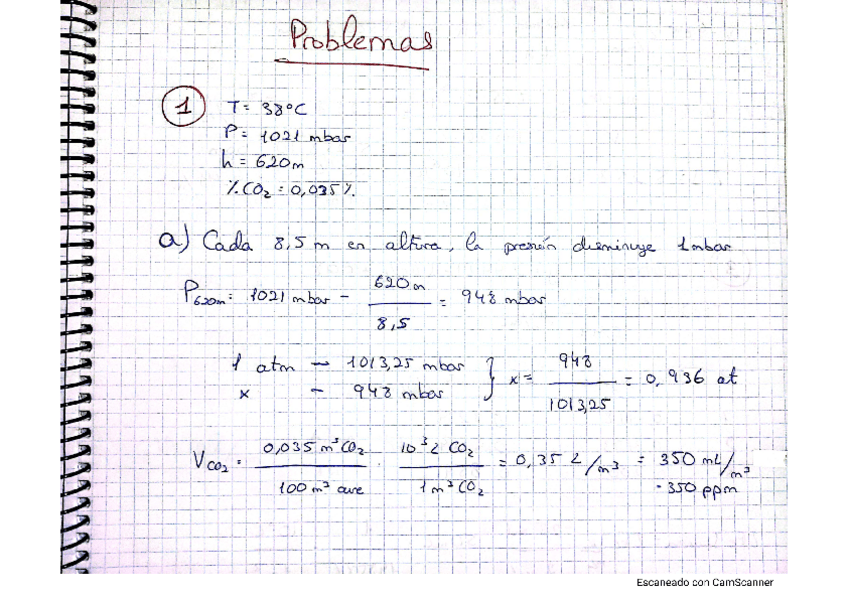 Problemas
1 T = 38°C
P = 1021 mbar
h = 620m
%CO₂ = 0,035%
a) Cada 8,5 m en altura, la presión disminuye 1mbar
P620m = 1021 mbar - 620m / 8,5 = 948 mbar
1 atm — 1013,25 mbar
x — 948 mbar } x = 948 / 1013,25 = 0,936 at
VCO₂ = 0,035 m³CO₂ / 100 m³ aire · 10³ L CO₂ / 1 m³ CO₂ = 0,35 L/m³ = 350 mL/m³
= 350 ppm
Escaneado con CamScanner